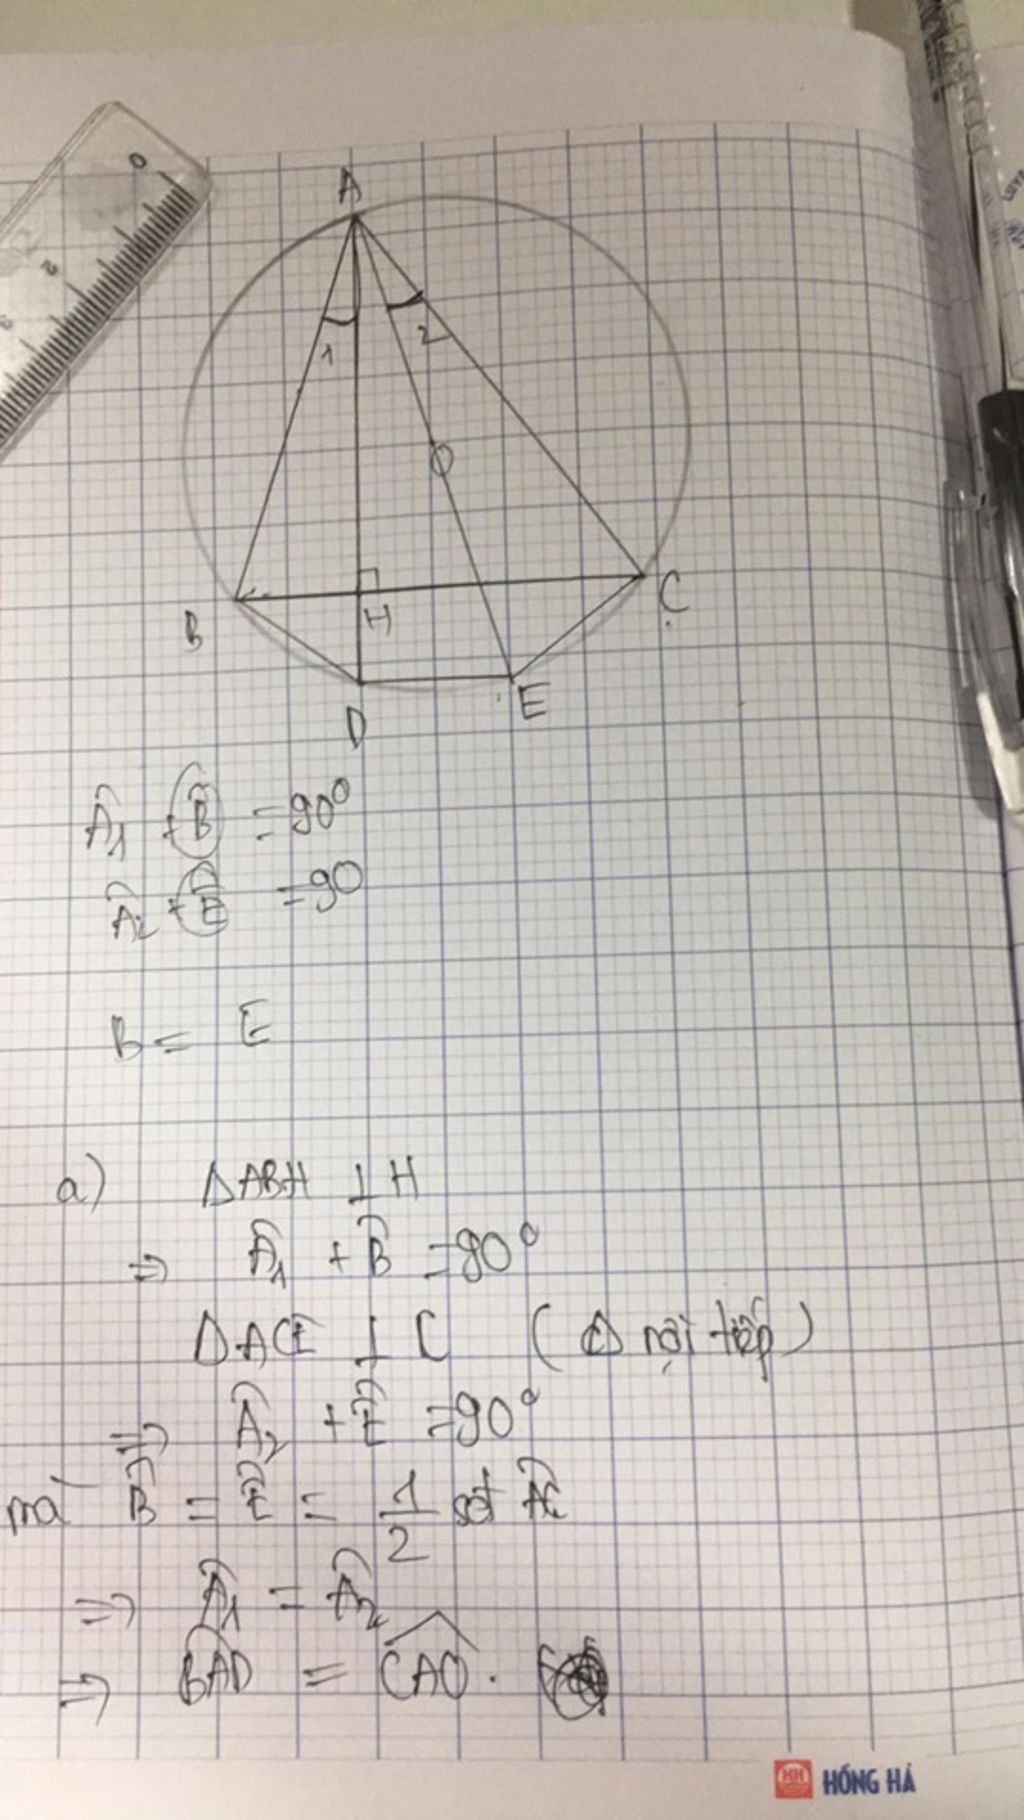 0
A
1
2
O
B
H
C
D
E
Â₁ + B̂ = 90⁰
Â₂ + Ê = 90
B = E
a) ΔABH ⊥ H
=> Â₁ + B̂ = 90⁰
ΔACE ⊥ C ( Δ nội tiếp)
=> Â₂ + Ê = 90⁰
mà B̂ = Ê = 1/2 sđ AC
=> Â₁ = Â₂
=> BAD = CAO.
HH HỒNG HÀ